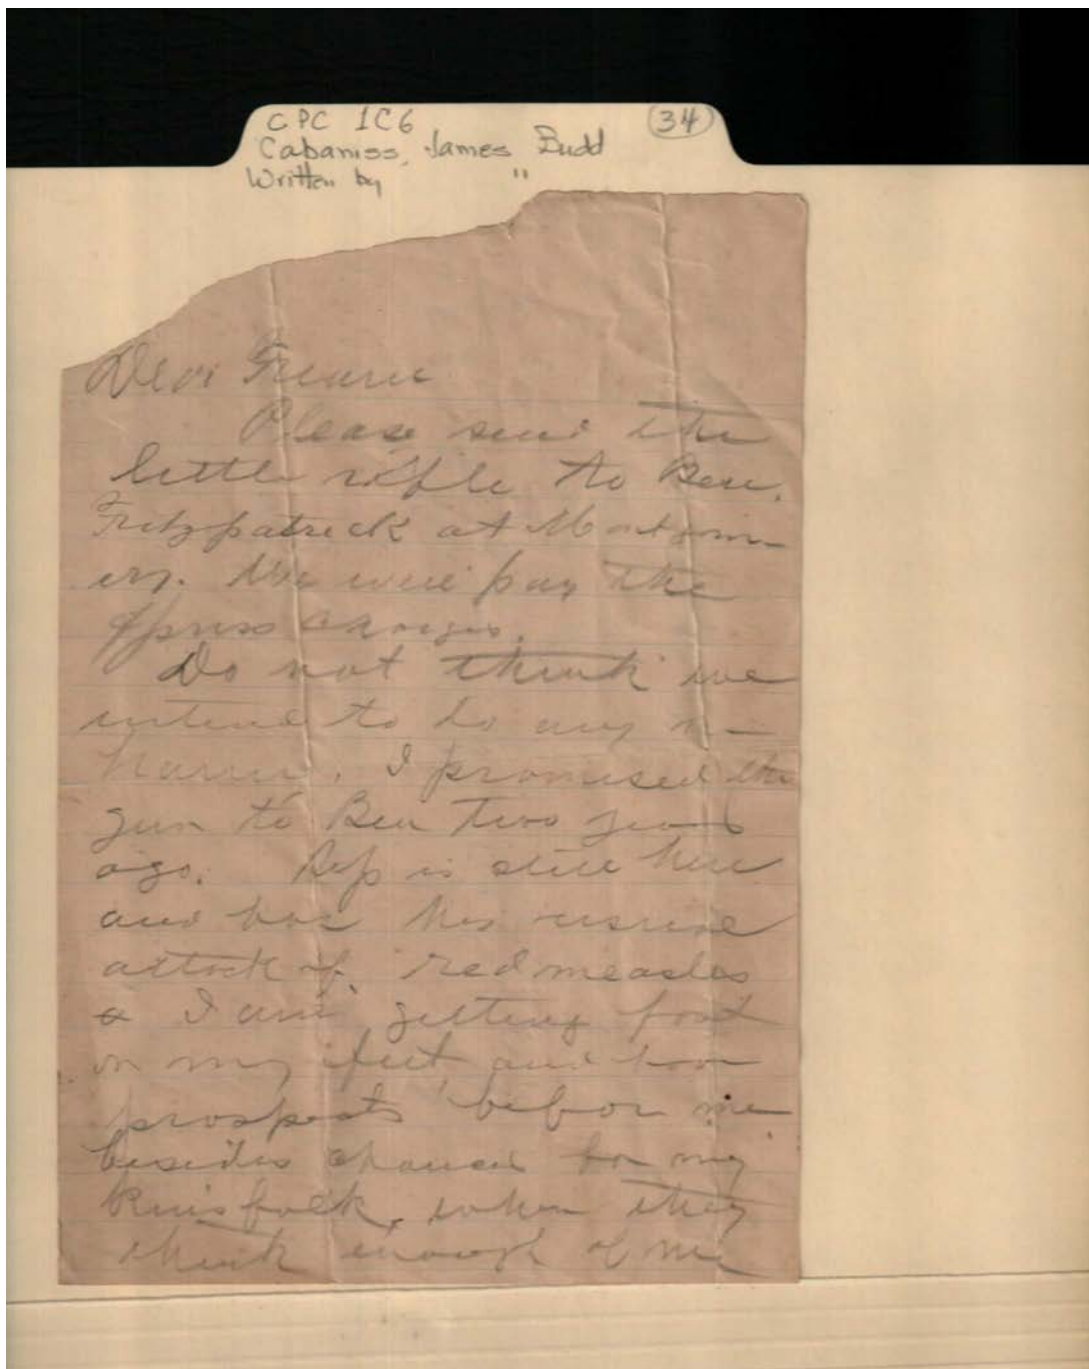 CPC 1C6 (34)
Cabaniss, James Budd
Written by "
Dear
Please send the
little rifle to Ben.
Fitzpatrick at Montgom-
ery. We will pay the
express charges.
Do not think we
intend to do any
. I promised the
gun to Ben two years
ago. is still here
and has his usual
attack of red measles
& I am getting fast
on my feet, and have
prospects before me
besides chances for my
kinsfolk, when they
think enough of me